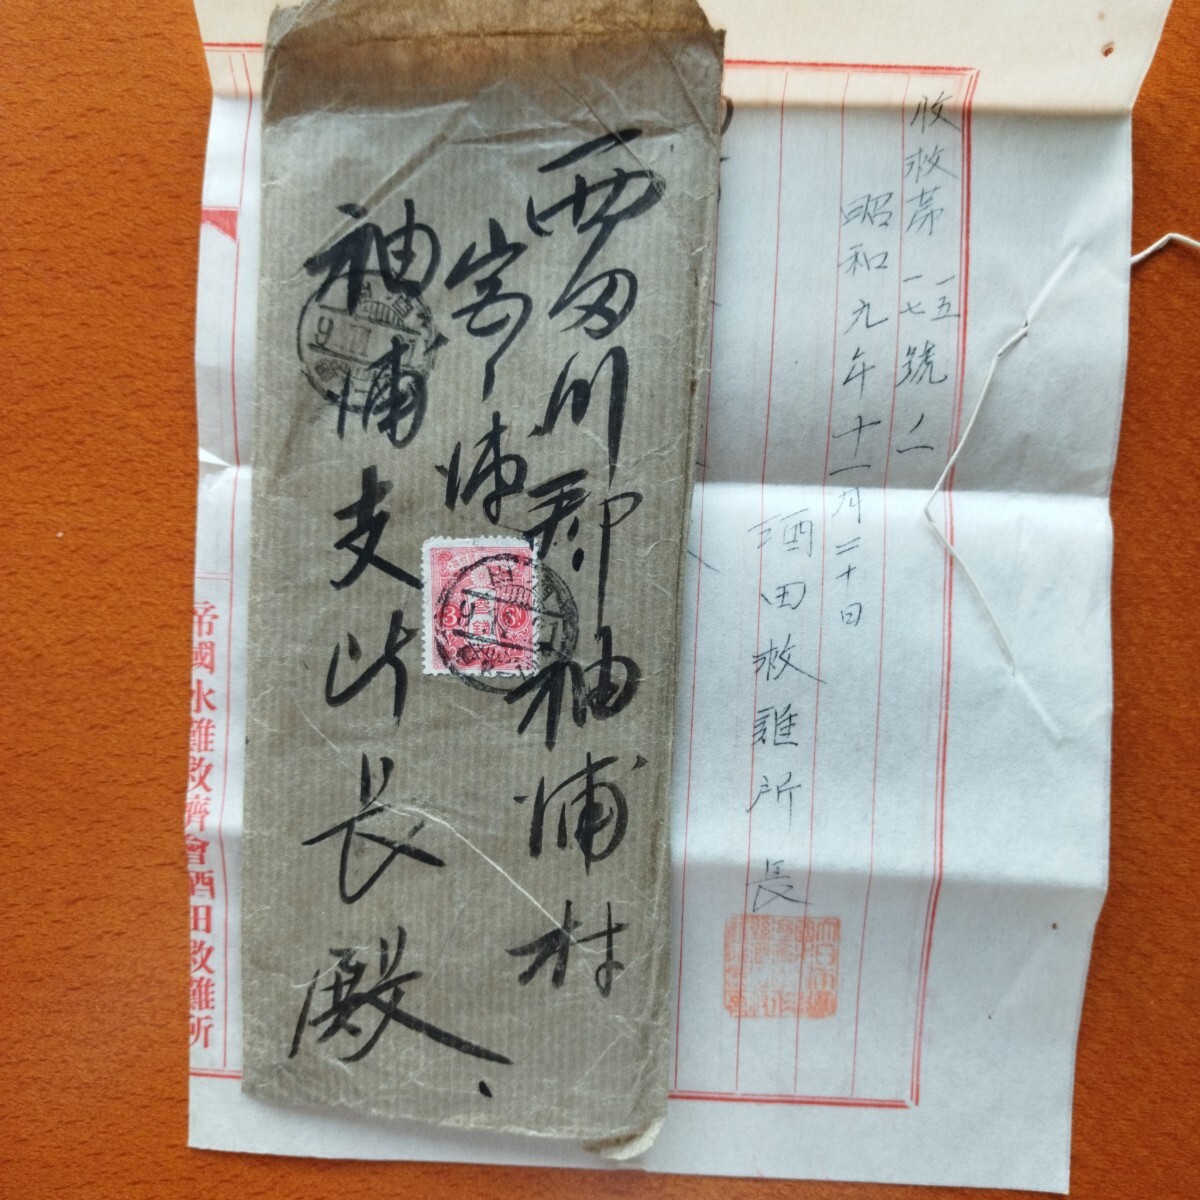 西田川郡袖浦村
宮ノ浦
袖浦支所長殿
3 参銭 3
收救第一五一七號ノ二
昭和九年十一月二十日
酒田救難所長
帝國水難救濟會酒田救難所